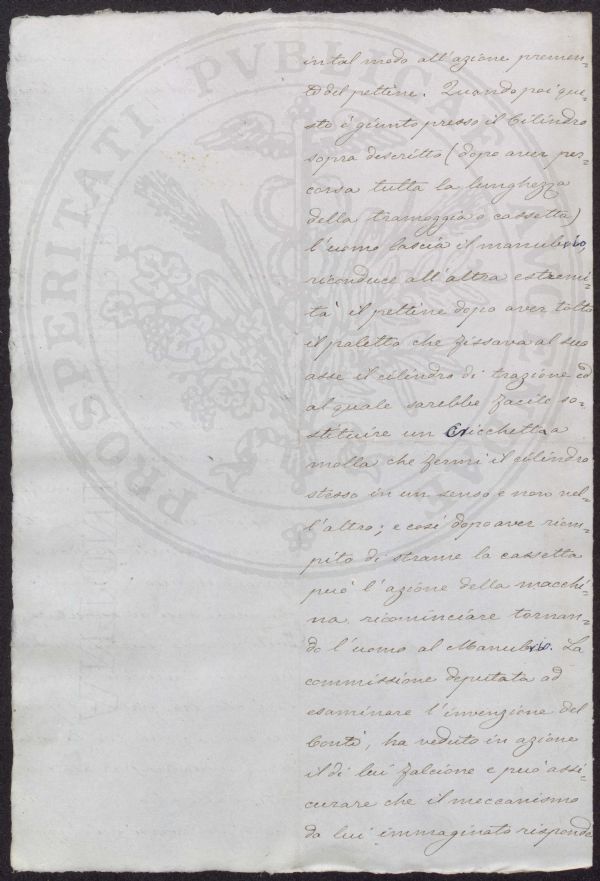 in tal modo all'azione premen=
te del pettine. Quando poi que=
sto è giunto presso il Cilindro
sopra descritto (dopo aver per=
corsa tutta la lunghezza
della tramoggia o cassetta)
l'uomo lascia il manubrio,
riconduce all'altra estremi=
tà il pettine dopo aver tolto
il paletto che fissava al suo
asse il cilindro di trazione ed
al quale sarebbe facile so=
stituire un Cricchetto a
molla che fermi il cilindro
stesso in un senso e non nel=
l'altro; e così dopo aver riem=
pito di strame la cassetta
può l'azione della macchi=
na ricominciare tornan=
do l'uomo al Manubrio. La
commissione deputata ad
esaminare l'invenzione del
Conti, ha veduto in azione
il di lui falcione e può assi=
curare che il meccanismo
da lui immaginato risponde
PROSPERITATI PVBLICAE AVGENDAE